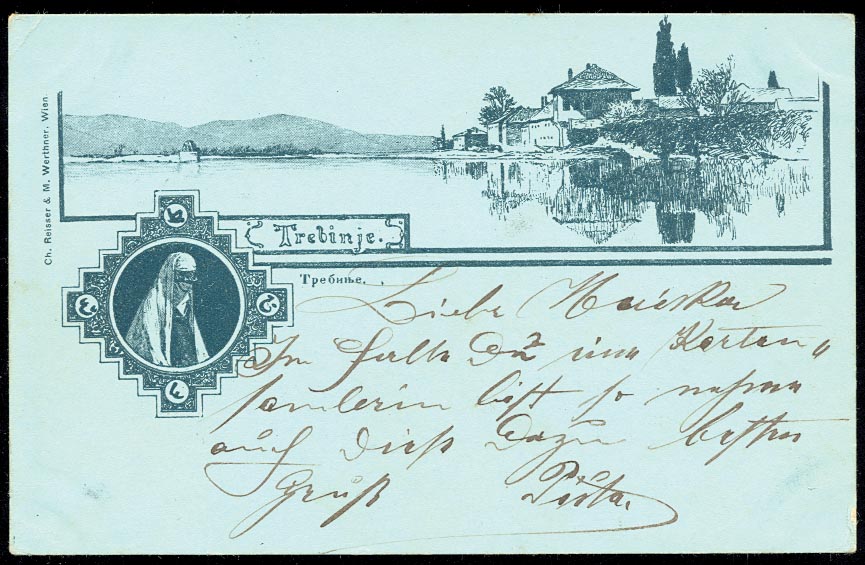 Ch. Reisser & M. Werthner, Wien.
Trebinje.
Требиње.
Liebe
Im Falle Du eine Karten„
samlerin bist so nehme
auch dieß dazu besten
Gruß Pista.